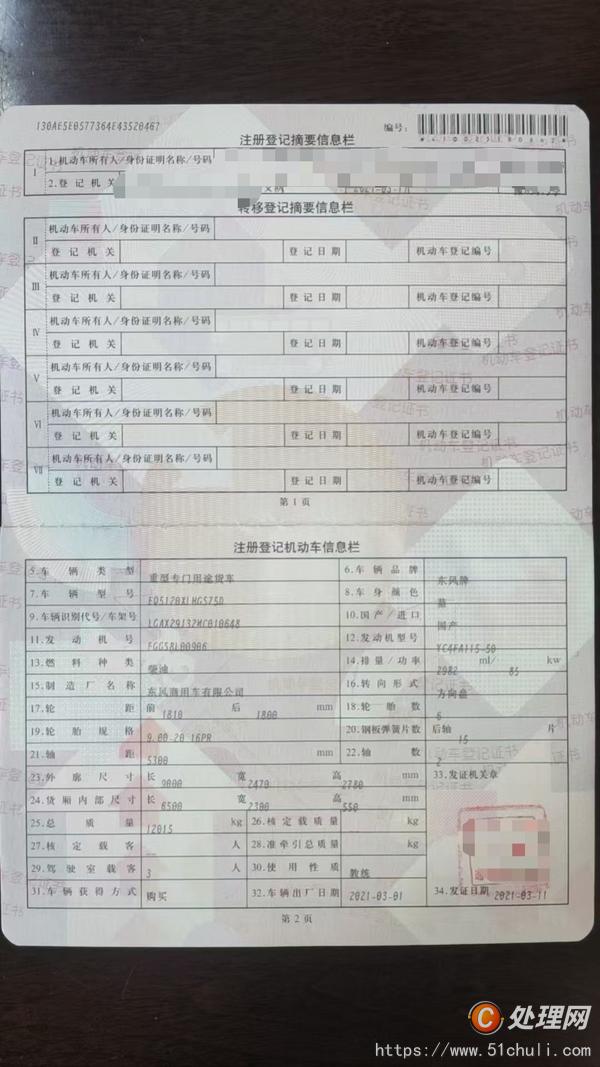 130AE5E0577364E43520467
编号:
注册登记摘要信息栏
I
1.机动车所有人/身份证明名称/号码
2.登记机关 2021-03-11
转移登记摘要信息栏
II 机动车所有人/身份证明名称/号码
登记机关 登记日期 机动车登记编号
III 机动车所有人/身份证明名称/号码
登记机关 登记日期 机动车登记编号
IV 机动车所有人/身份证明名称/号码
登记机关 登记日期 机动车登记编号
V 机动车所有人/身份证明名称/号码
登记机关 登记日期 机动车登记编号
VI 机动车所有人/身份证明名称/号码
登记机关 登记日期 机动车登记编号
VII 机动车所有人/身份证明名称/号码
登记机关 登记日期 机动车登记编号
第1页
注册登记机动车信息栏
5.车辆类型 重型专门用途货车 6.车辆品牌 东风牌
7.车辆型号 EQ5120XLHGS75D 8.车身颜色 蓝
9.车辆识别代号/车架号 LGAX29132MC010648 10.国产/进口 国产
11.发动机号 FGG58L00906 12.发动机型号 YC4FA115-50
13.燃料种类 柴油 14.排量/功率 2982 ml/ 85 kw
15.制造厂名称 东风商用车有限公司 16.转向形式 方向盘
17.轮距 前 1810 后 1800 mm 18.轮胎数 6
19.轮胎规格 9.00-20 16PR 20.钢板弹簧片数 后轴 15 片
21.轴距 5300 mm 22.轴数 2
23.外廓尺寸 长 9000 宽 2470 高 2780 mm 33.发证机关章
24.货厢内部尺寸 长 6500 宽 2300 高 550 mm
25.总质量 12015 kg 26.核定载质量 kg
27.核定载客 -- 人 28.准牵引总质量 -- kg
29.驾驶室载客 3 人 30.使用性质 教练
31.车辆获得方式 购买 32.车辆出厂日期 2021-03-01 34.发证日期 2021-03-11
第2页
C 处理网
https://www.51chuli.com